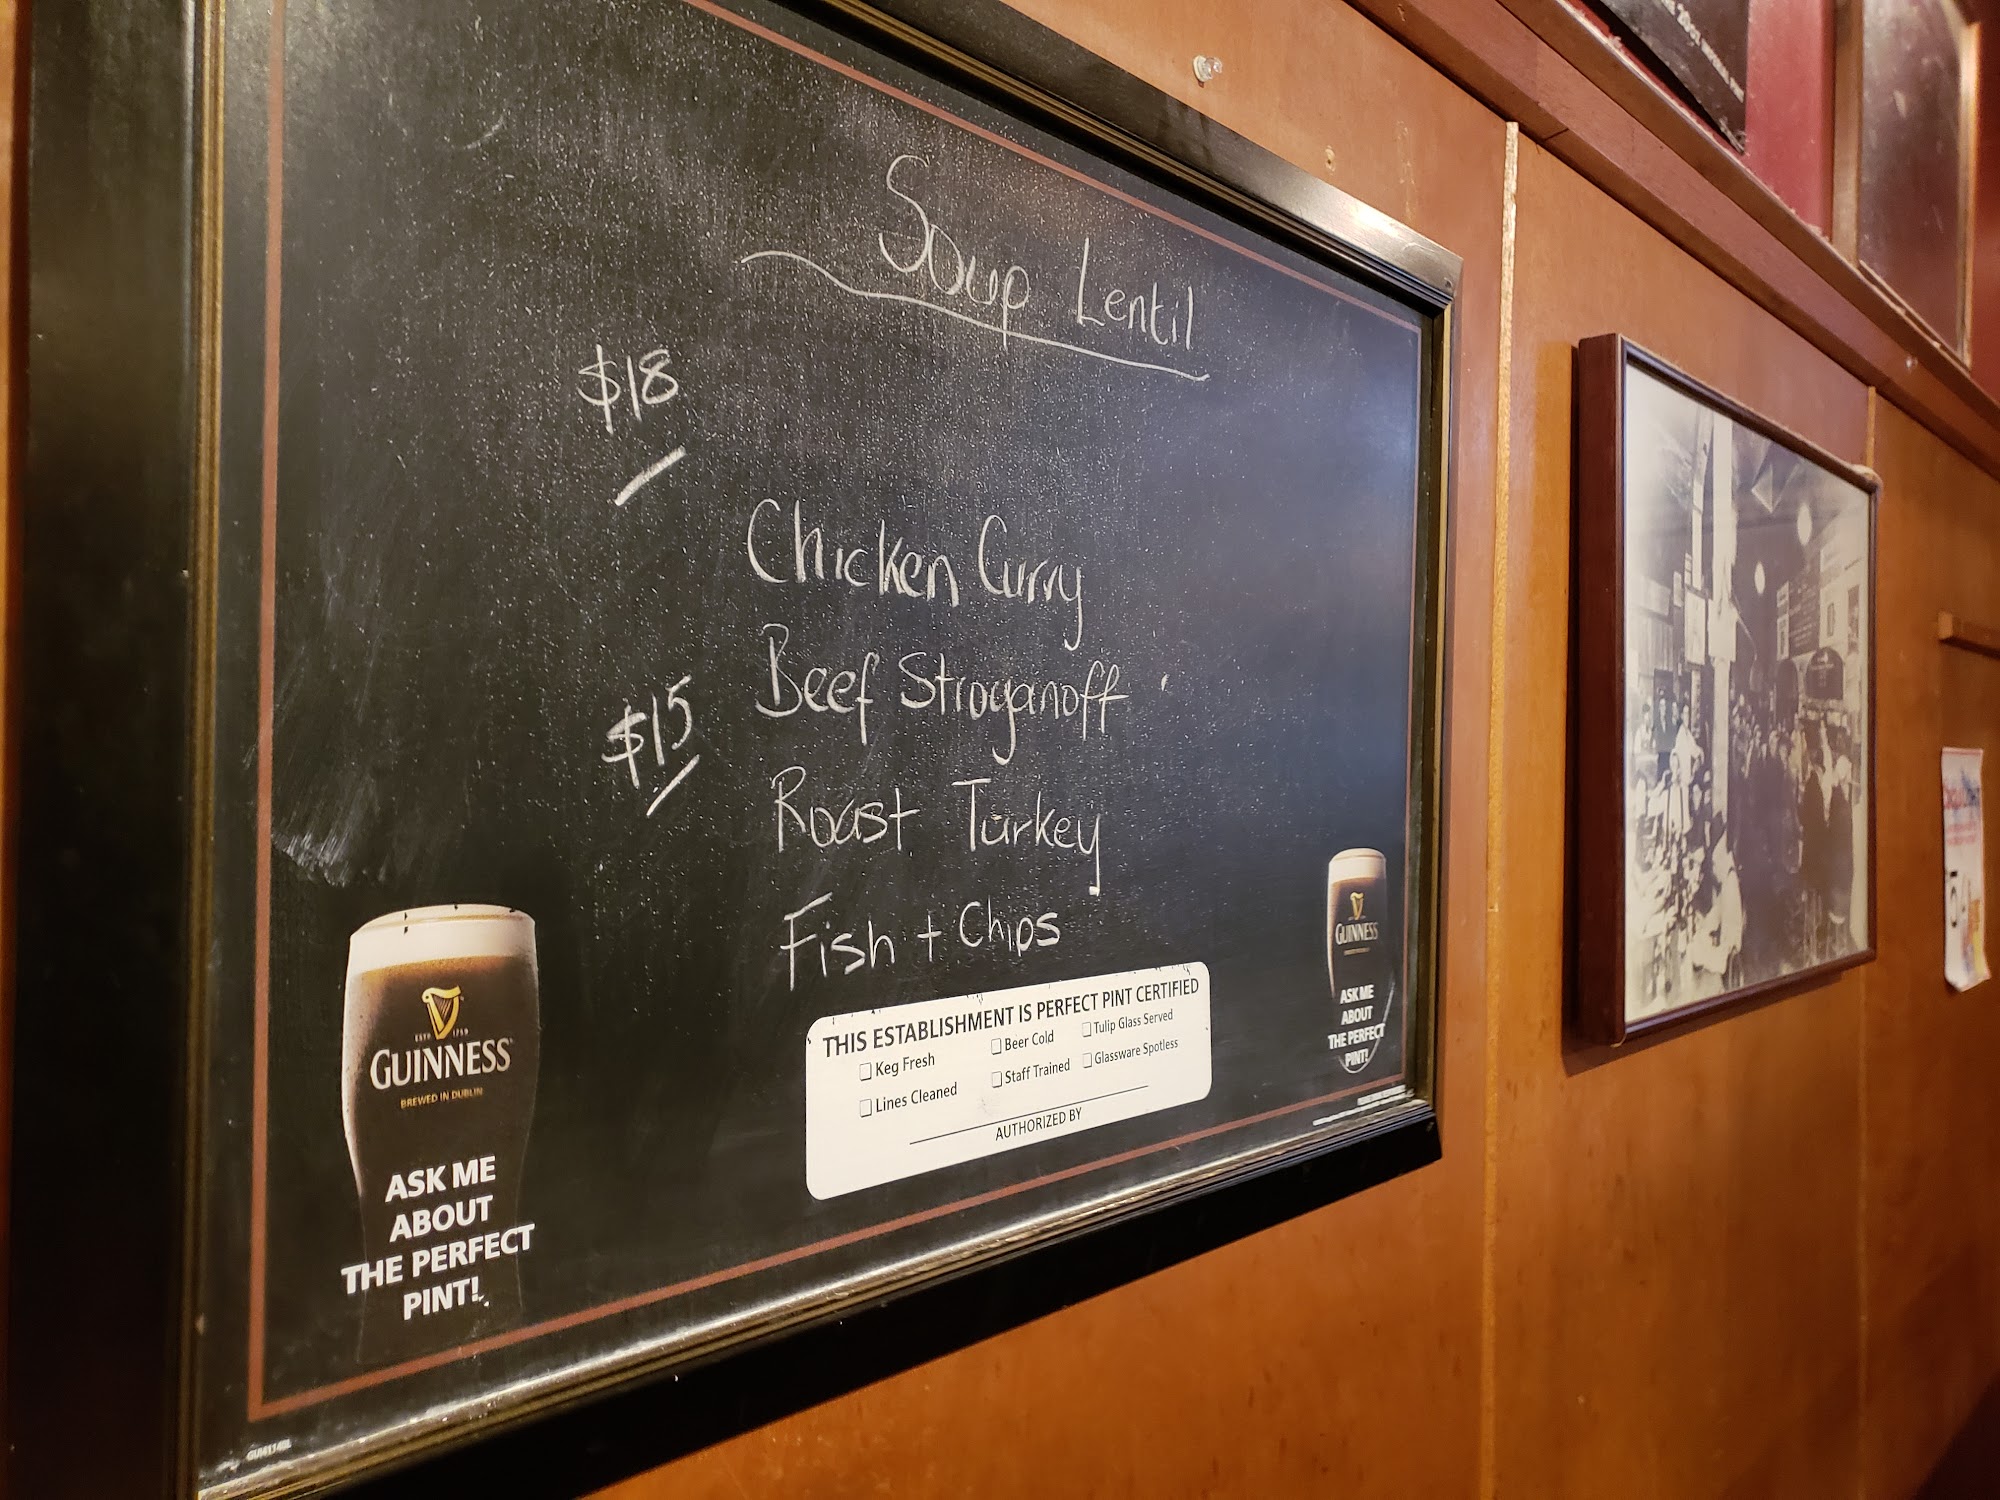 Soup Lentil
$18
Chicken Curry
Beef Stroganoff
$15
Roast Turkey
Fish + Chips
THIS ESTABLISHMENT IS PERFECT PINT CERTIFIED
Keg Fresh
Beer Cold
Tulip Glass Served
Lines Cleaned
Staff Trained
Glassware Spotless
AUTHORIZED BY
ESTD 1759
GUINNESS
BREWED IN DUBLIN
ASK ME
ABOUT
THE PERFECT
PINT!
GUINNESS
ASK ME
ABOUT
THE PERFECT
PINT!